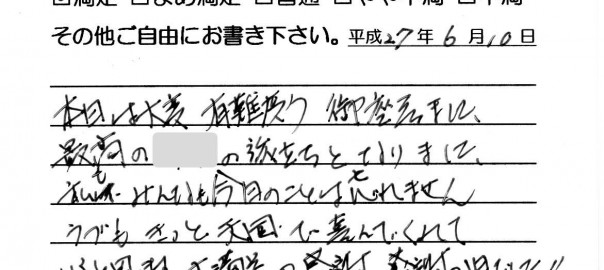 満足 □まあ満足 □普通 □やや不満 □不満
その他ご自由にお書き下さい。平成27年6月10日
本日は大変 有難う 御座居ました、
最高の の旅立ちとなりました、
私も みんなも今日のことは忘れません
うづも きっと天国で喜んでくれて
大満足 の 感謝